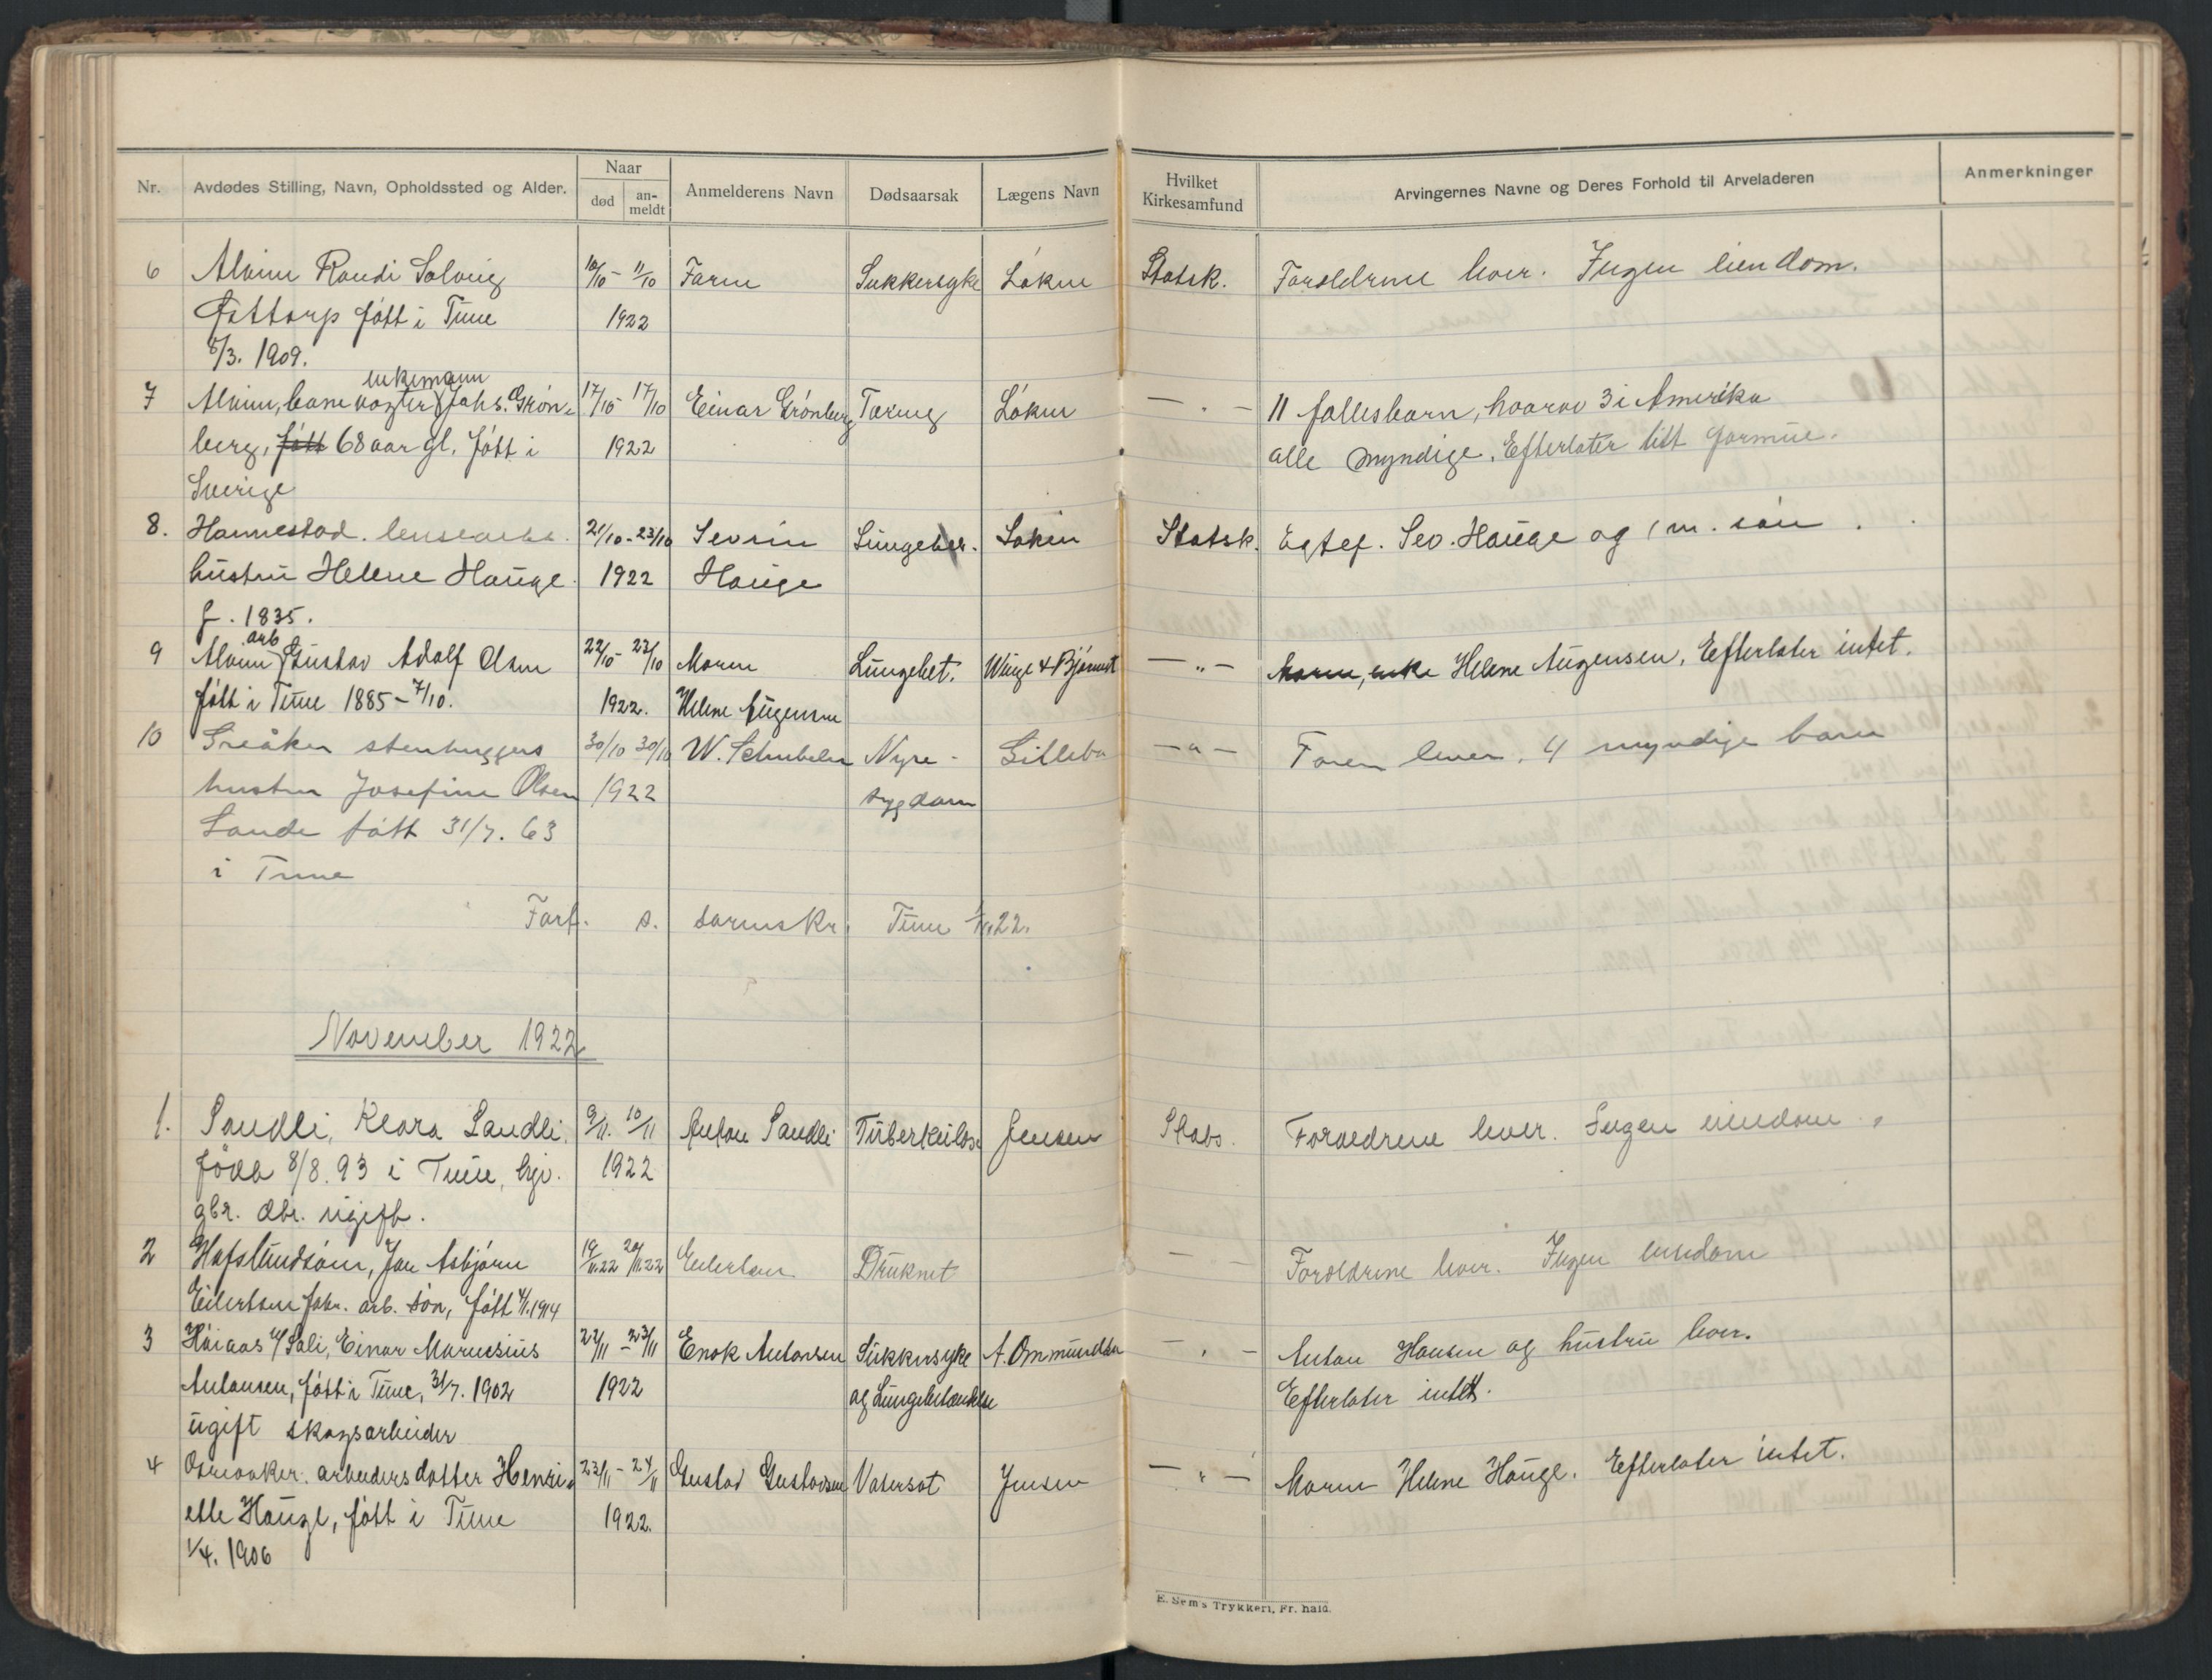 Nr.
Avdødes Stilling, Navn, Opholdssted og Alder.
Naar
død
an-
meldt
Anmelderens Navn
Dødsaarsak
Lægens Navn
Hvilket
Kirkesamfund
Arvingernes Navne og Deres Forhold til Arveladeren
Anmerkninger
6 Alvim Randi Solveig 10/10 - 11/10 Faren Sukkersyke Løken Statsk. Forældrene lever. Ingen eiendom.
født i Tune 1922
8/3. 1909.
enkemann
7 Alvim, banevogter Johs. Grøn- 17/10 17/10 Einar Grønberg Tæring Løken — " — 11 fællesbarn, hvorav 3 i Amerika
berg, født 68 aar gl. født i 1922 alle myndige. Efterlater litt formue.
Sverige
8. Hannestad. lensearb. 21/10 - 23/10 Sevrin Lungebet. Løken Statsk. Egtef. Sev. Hauge og 1 m. søn.
hustru Helene Hauge 1922 Hauge
f. 1835.
arb
9 Alvim Gustav Adolf Olsen 22/10 - 23/10 Moren Lungebet. Winge & — " — Moren, enke Helene Augensen, Efterlater intet.
født i Tune 1885 - 7/10. 1922. Helene Augensen
10 Greåker stenhuggers 30/10 30/10 W. Schubeler Nyre- Lillebo — " — Faren lever, 4 myndige barn
hustru Josefine Olsen 1922 sygdom
Sande født 31/7. 63
i Tune
s. sorenskr. Tune 22.
November 1922
1. Sandli, Klara Sandli, 9/11. 10/11 Anton Sandli Tuberkulose Jensen Stats. Forældrene lever. Ingen eiendom.
född 8/8. 93 i Tune, 1922
gbr. dtr. ugift.
2 Hafslundsøen, Jan Asbjørn 19/11.22 20/11.22 Eilertsen Druknet — Forældrene lever. Ingen eiendom
Eilertsen fabr. arb. søn, født 4/1. 1914
3 Høiaas u/ Soli, Einar Maruesius 22/11 - 23/11 Enok Antonsen Sukkersyke A. Ommundsen — " — Anton Hansen og hustru lever.
Antonsen, født i Tune, 31/7. 1902 1922 og Lungebetændelse Efterlater intet.
ugift skogsarbeider
4 arbeidersdatter Henri- 23/11 - 24/11 Gustav Gustavsen Vatersot Jensen — " — Moren Helene Hauge. Efterlater intet.
ette Hauge, født i Tune 1922.
1/4. 1906
E. Sem's Trykkeri, Fr. hald.